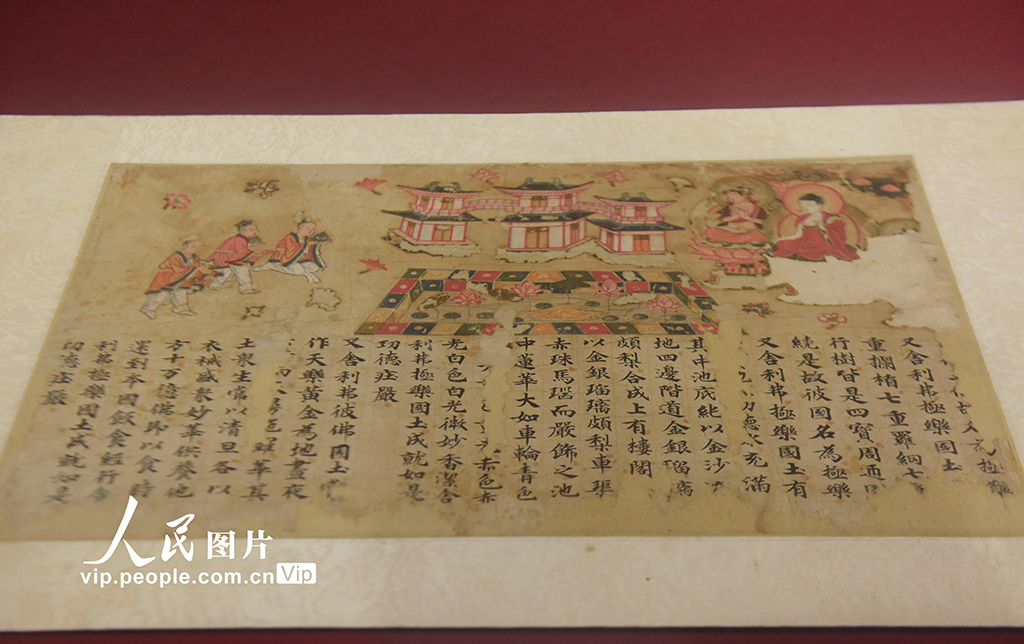 極
又舍利弗極樂國土
重欄楯七重羅網七
行樹皆是四寶周
繞是故彼國名為極樂
又舍利弗極樂國土有
德水充滿
其中池底純以金沙
地四邊階道金銀瑠
頗梨合成上有樓閣
以金銀瑠璃頗梨車璖
赤珠馬瑙而嚴飾之池
中蓮華大如車輪青色
赤色赤
光白色白光微妙香潔舍
利弗極樂國土成就如是
功德莊嚴
又舍利弗彼佛國土
作天樂黃金為地晝夜
羅華其
土眾生常以清旦各以
衣裓盛眾妙華供養他
方十万億佛即以食時
還到本國飯食經行舍
利弗極樂國土成就如是
功德莊嚴
人民图片
vip.people.com.cn Vip